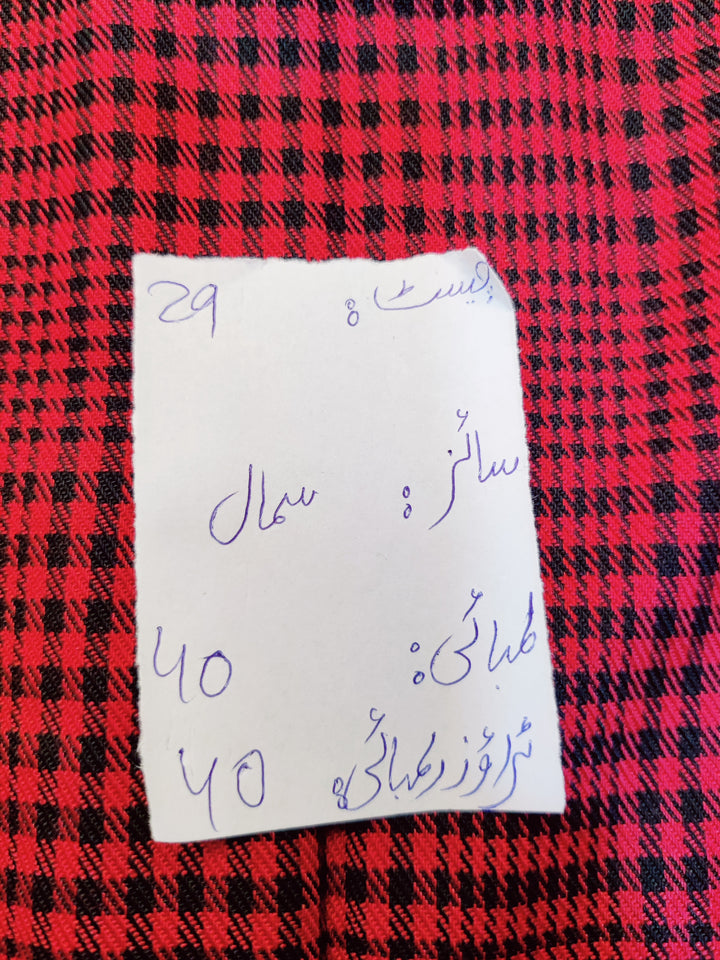 چیسٹ: 29
سائز: سمال
لمبائی: 40
ٹراؤزر لمبائی: 40